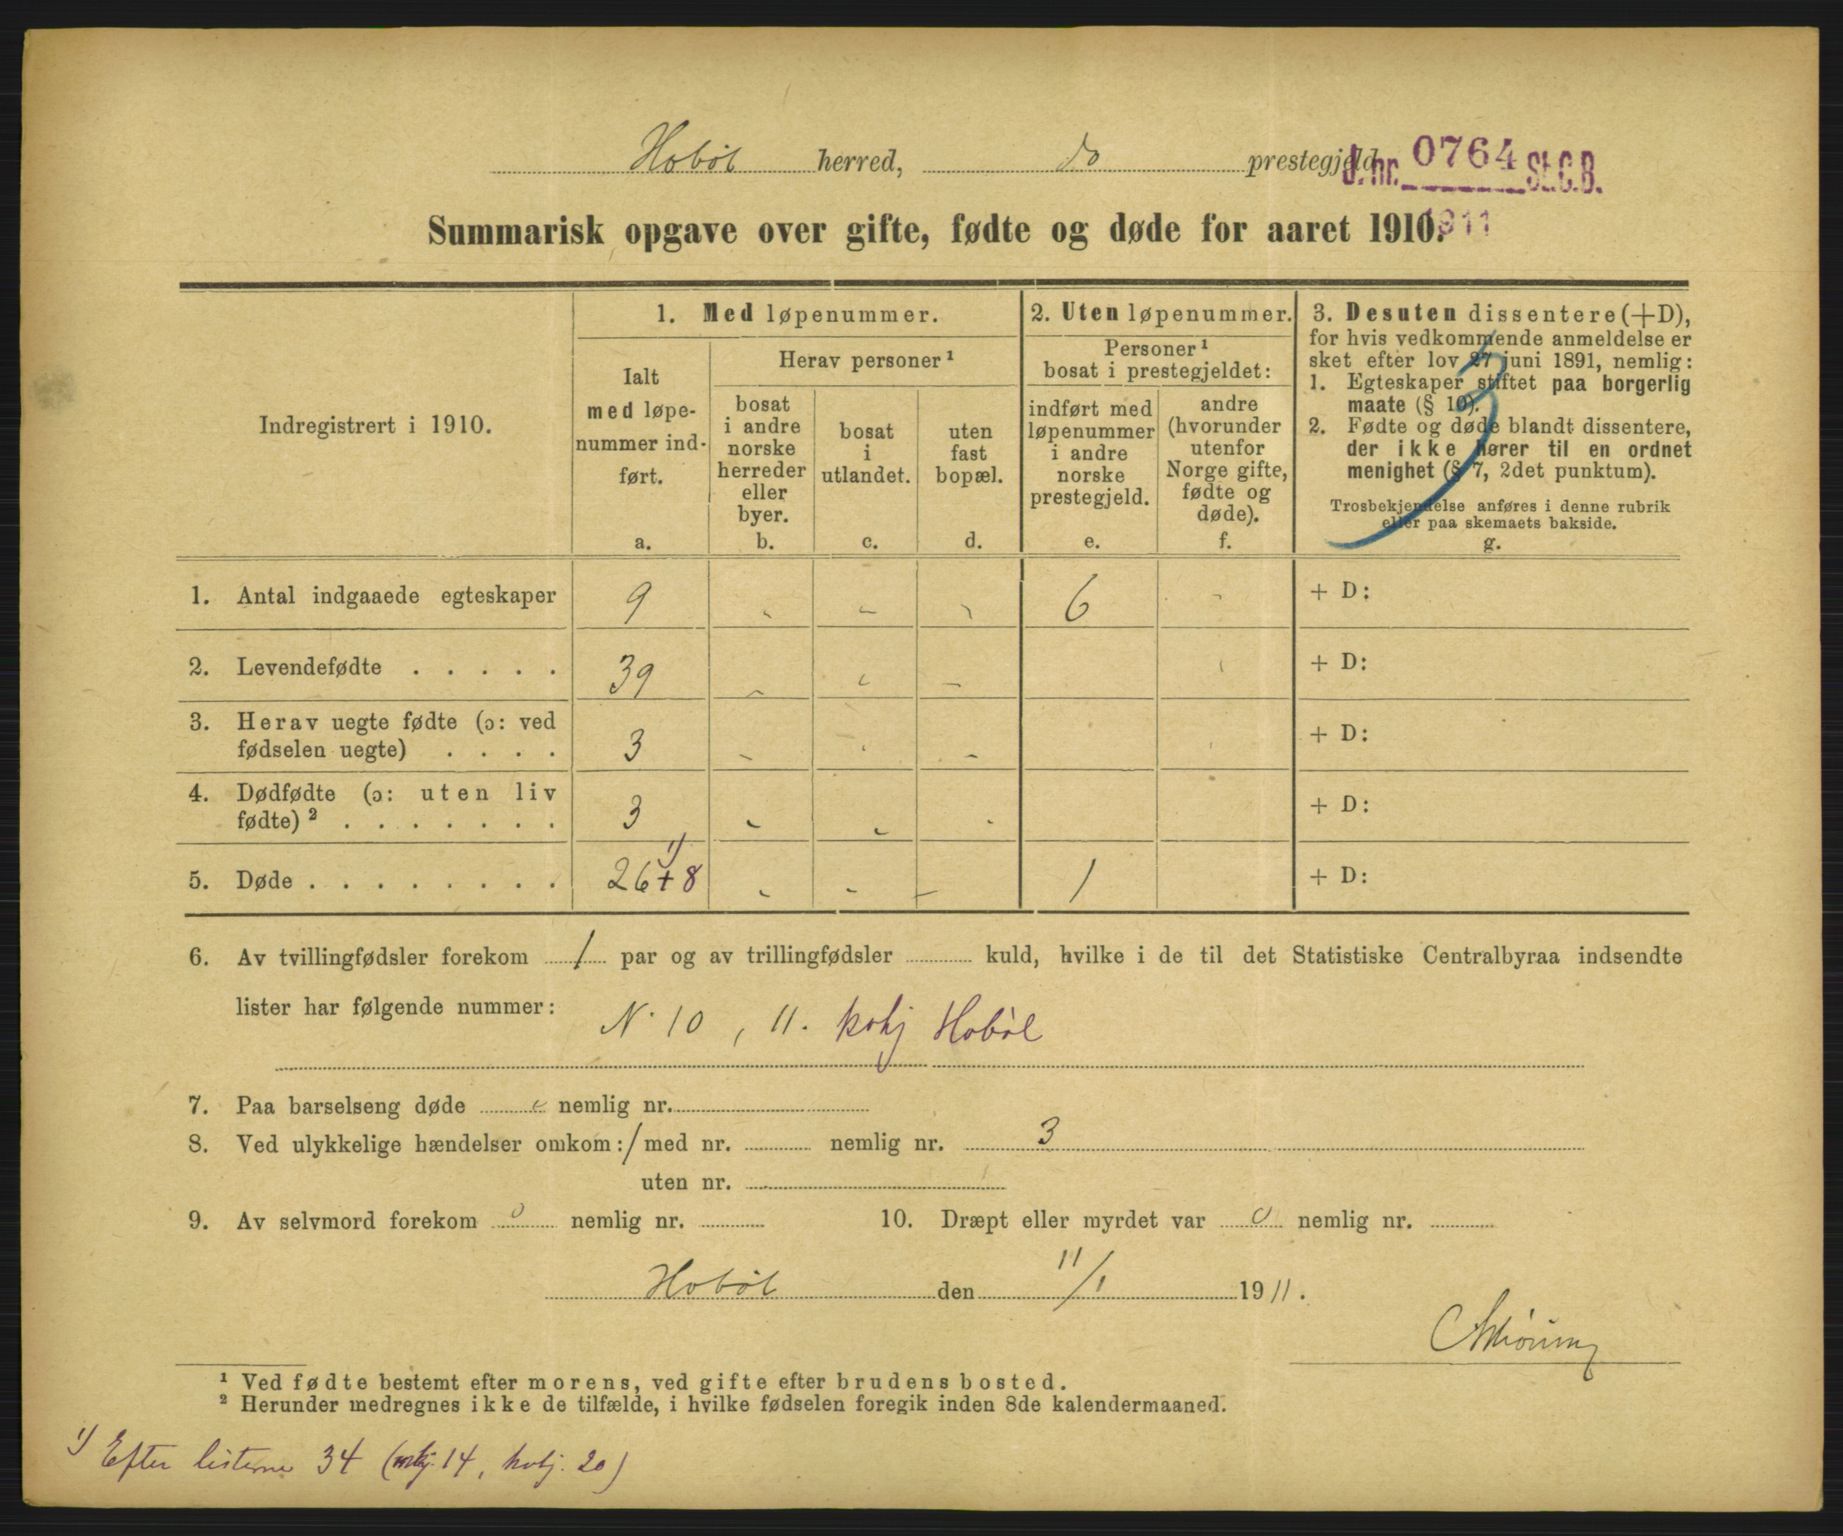 Hobøl herred, do prestegjeld.
J. nr. 0764 St.C.B.
1911
Summarisk opgave over gifte, fødte og døde for aaret 1910.
Indregistrert i 1910.
1. Med løpenummer.
Ialt
med løpe-
nummer ind-
ført.
a.
Herav personer ¹
bosat
i andre
norske
herreder
eller
byer.
b.
bosat
i
utlandet.
c.
uten
fast
bopæl.
d.
2. Uten løpenummer.
Personer ¹
bosat i prestegjeldet:
indført med
løpenummer
i andre
norske
prestegjeld.
e.
andre
(hvorunder
utenfor
Norge gifte,
fødte og
døde).
f.
3. Desuten dissentere (+D),
for hvis vedkommende anmeldelse er
sket efter lov 27 juni 1891, nemlig:
1. Egteskaper stiftet paa borgerlig
maate (§ 10).
2. Fødte og døde blandt dissentere,
der ikke hører til en ordnet
menighet (§ 7, 2det punktum).
Trosbekjendelse anføres i denne rubrik
eller paa skemaets bakside.
g.
3
1. Antal indgaaede egteskaper 9 - - - 6 - + D:
2. Levendefødte . . . . . 39 - - - - + D:
3. Herav uegte fødte (ɔ: ved
fødselen uegte) . . . . 3 - - - - + D:
4. Dødfødte (ɔ: uten liv
fødte) ² . . . . . . . 3 - - - + D:
5. Døde . . . . . . . . 26 + 8 ¹) - - - 1 + D:
6. Av tvillingfødsler forekom 1 par og av trillingfødsler kuld, hvilke i de til det Statistiske Centralbyraa indsendte
lister har følgende nummer: N. 10, 11. kvkj Hobøl
7. Paa barselseng døde 0 nemlig nr.
8. Ved ulykkelige hændelser omkom: 1 med nr. nemlig nr. 3
uten nr.
9. Av selvmord forekom 0 nemlig nr. 10. Dræpt eller myrdet var 0 nemlig nr.
Hobøl den 11/1 1911.
¹ Ved fødte bestemt efter morens, ved gifte efter brudens bosted.
² Herunder medregnes ikke de tilfælde, i hvilke fødselen foregik inden 8de kalendermaaned.
¹) Efter listerne 34 (mkj. 14, kvkj. 20)